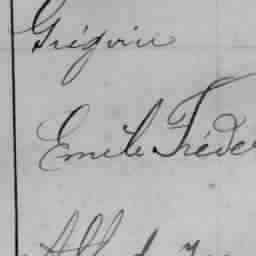 Grégoire
Emile Fréde